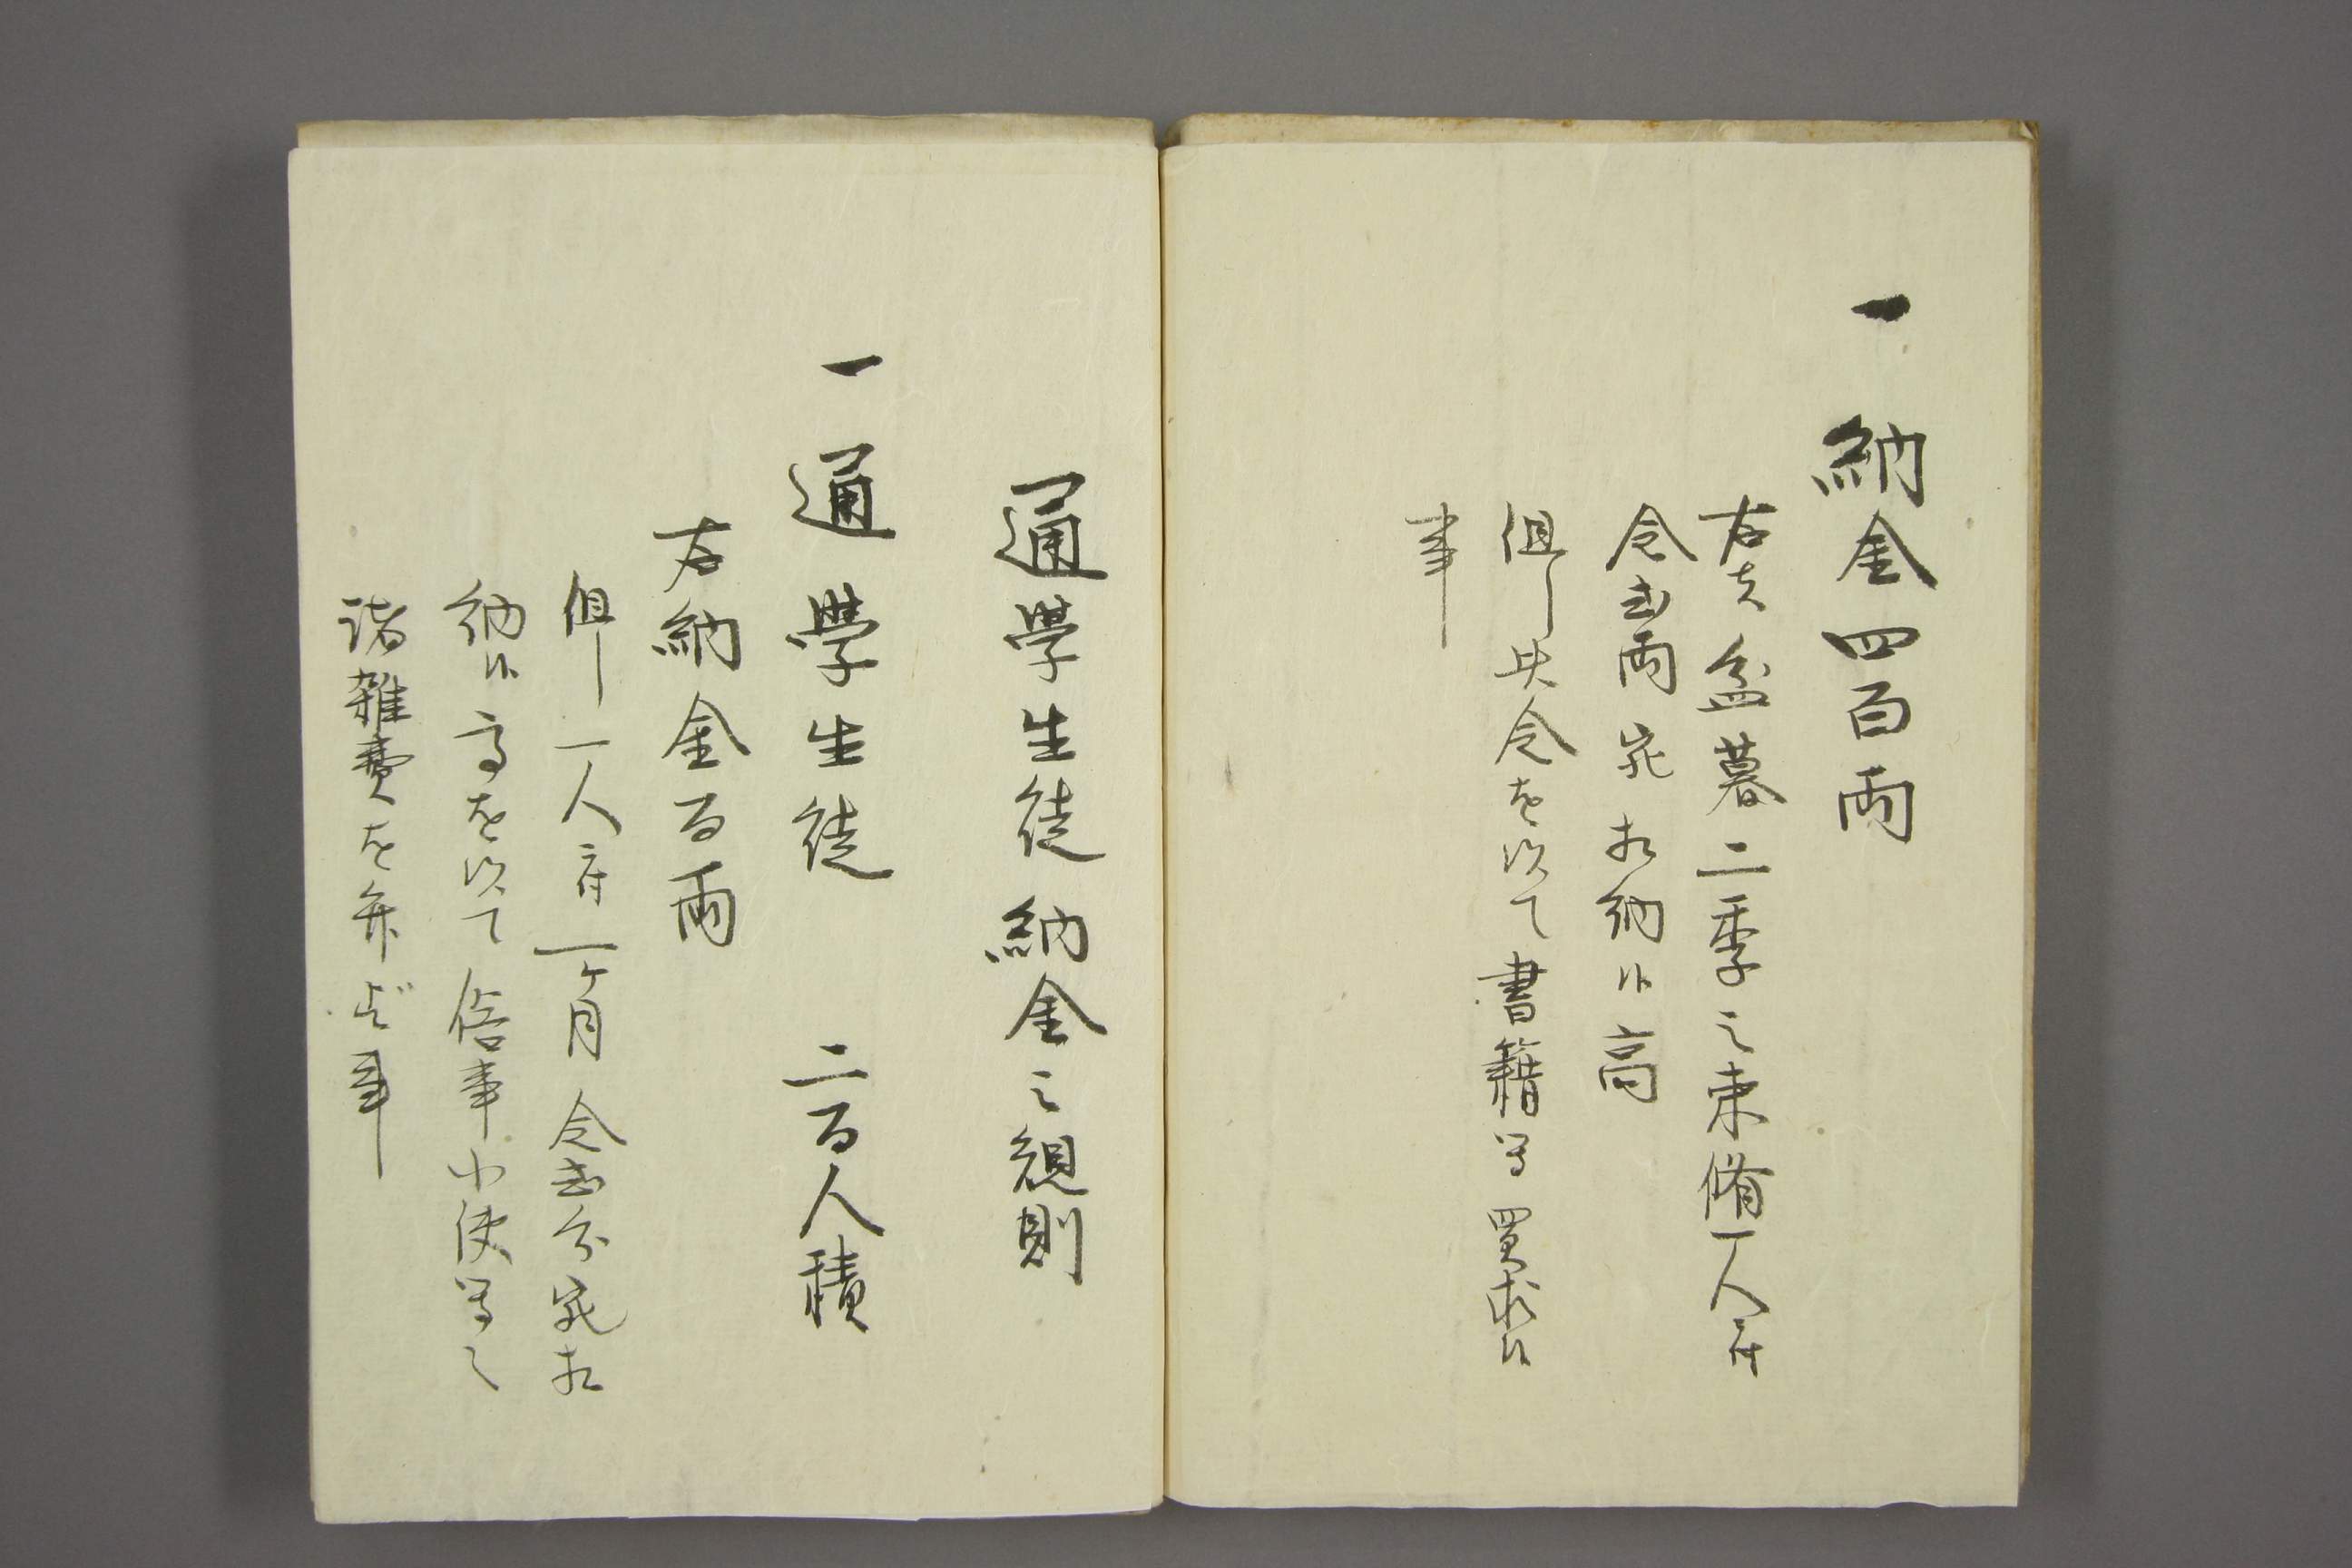 一 納金四百両
右者盆暮二季之束脩一人ニ付
金弐両宛相納候高
但し此金を以て書籍等買求候
事
通學生徒納金之規則
一 通學生徒 二百人積
右納金百両
但し一人ニ付一ヶ月金弐分宛相
納候高を以て事小使等之
諸雑費を弁事